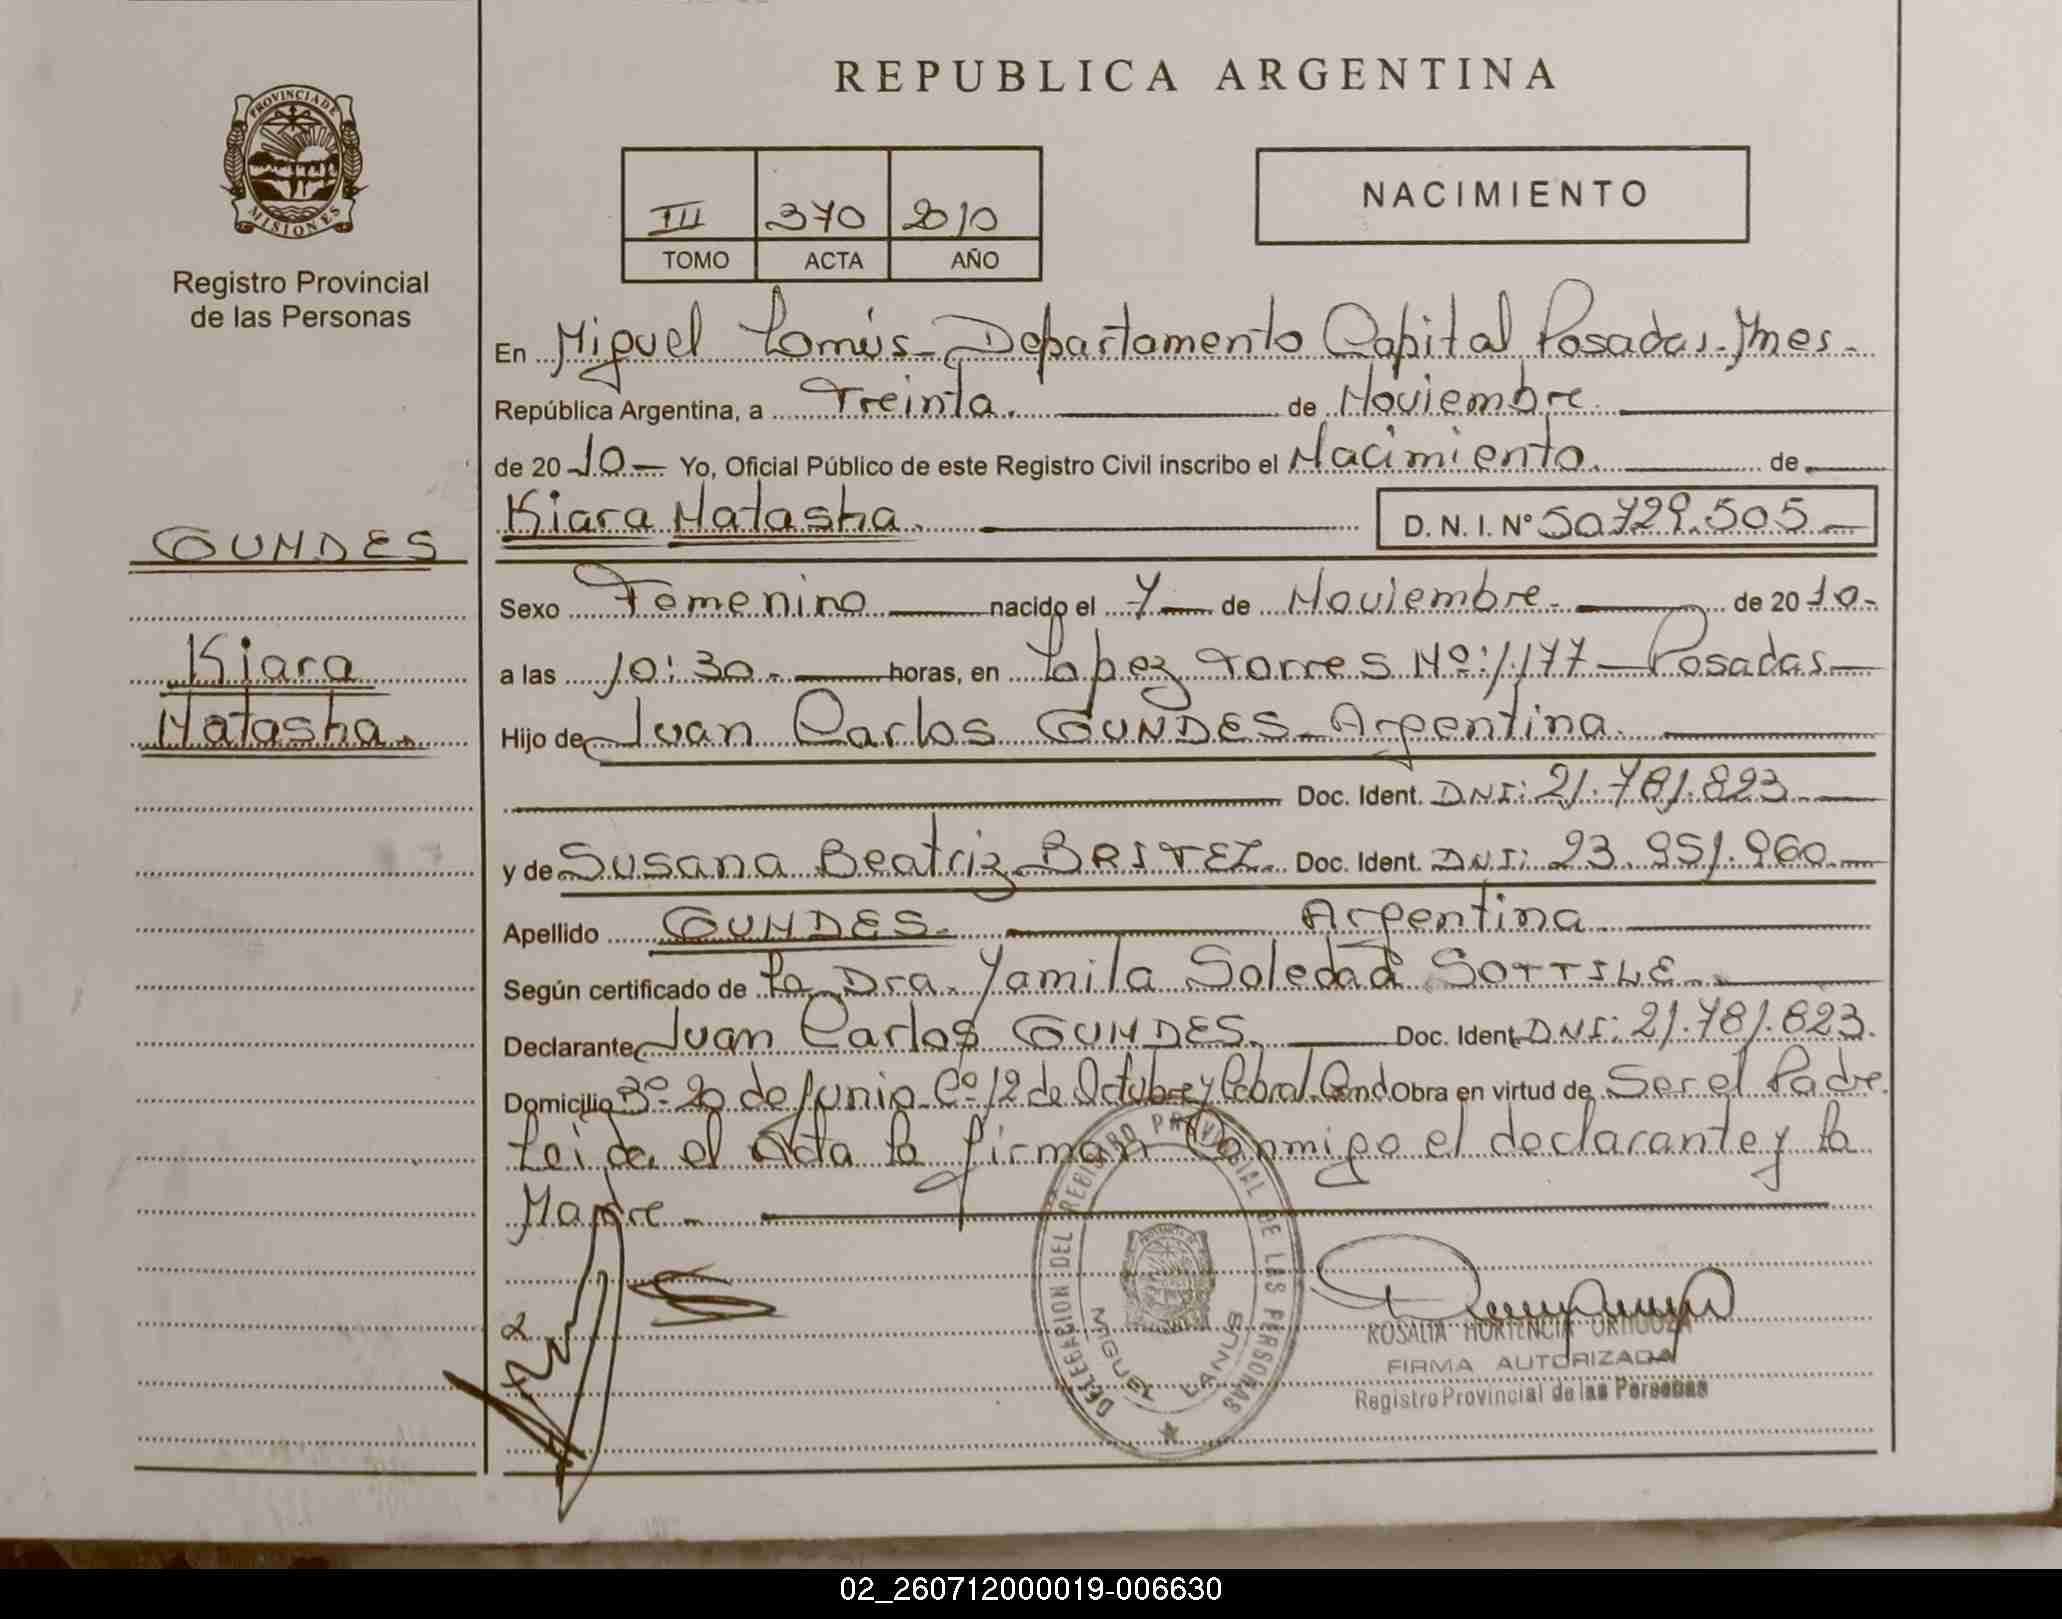 REPUBLICA ARGENTINA
PROVINCIA DE MISIONES
Registro Provincial
de las Personas
III 370 2010
TOMO ACTA AÑO
NACIMIENTO
En Miguel Lanús - Departamento Capital Posadas - Mnes -
República Argentina, a Treinta. de Noviembre.
de 20 10 - Yo, Oficial Público de este Registro Civil inscribo el Nacimiento. de
Kiara Natasha. D. N. I. Nº 50.729.505 -
GUNDES
Kiara
Natasha.
Sexo Femenino nacido el 7 de Noviembre - de 20 10 -
a las 10:30 - horas, en Lopez Torres Nº: 1.177 - Posadas -
Hijo de Juan Carlos GUNDES - Argentina.
Doc. Ident. DNI: 21.781.823 -
y de Susana Beatriz BRITEZ. Doc. Ident. DNI: 23.951.960 -
Apellido GUNDES - Argentina
Según certificado de La Dra. Yamila Soledad SOTTILE -
Declarante Juan Carlos GUNDES. Doc. Ident. DNI: 21.781.823.
Domicilio Bº 20 de Junio - Cº 12 de Octubre y Cabral. Cand. Obra en virtud de Ser el Padre.
Leida el Acta la firman Conmigo el declarante y la
Madre -
DELEGACION DEL REGISTRO PROVINCIAL DE LAS PERSONAS
MIGUEL LANUS
ROSALIA HORTENCIA ORTIGOZA
FIRMA AUTORIZADA
Registro Provincial de las Personas
02_260712000019-006630